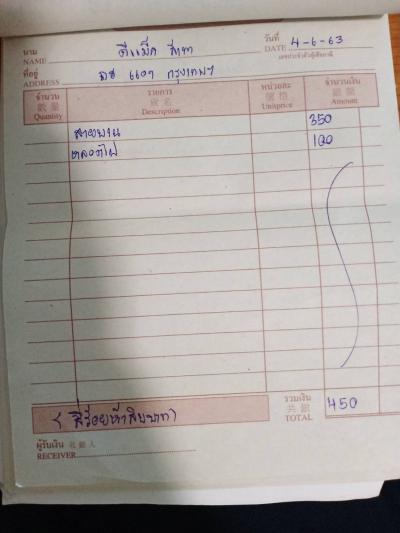 นาม NAME ดีแม็ค สีทา วันที่ DATE 4-6-63
เลขประจำตัวผู้เสียภาษี
ที่อยู่ ADDRESS กรุงเทพฯ
จำนวน รายการ หน่วยละ จำนวนเงิน
數量 貨名 價格 銀額
Quantity Description Unitprice Amount
สายพาน 350
หลอดไฟ 100
รวมเงิน
共銀
TOTAL 450
(สี่ร้อยห้าสิบบาท)
ผู้รับเงิน 收銀人
RECEIVER